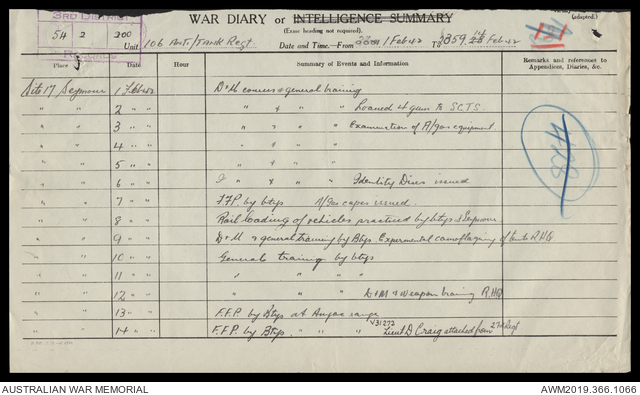 3RD DISTRICT
54 2 200
RECORDS
WAR DIARY or INTELLIGENCE SUMMARY
(adapted.)
(Erase heading not required).
Unit 106 Anti/Tank Regt
Date and Time—From 1 Feb 42 To 2359, Feb 42
Place
Date
Hour
Summary of Events and Information
Remarks and references to
Appendices, Diaries, &c.
Site 17 Seymour 1 Feb 42 D+M courses & general training
" " 2 " " " + " " Loaned 4 guns to S.C.T.S.
" " 3 " " " + " " Examination of A/gas equipment
" " 4 " " " + " "
" " 5 " " " + " "
" " 6 " " " + " " Identity Discs issued
" " 7 " " F.F.P. by btys A/Gas capes issued
" " 8 " " Rail loading of vehicles practised by btys & Seymour
" " 9 " " D+M & general training by Btys. Expermental camoflaging of tents R.H.Q
" " 10 " " General training by btys
" " 11 " " " " " "
" " 12 " " D+M & weapon training R.H.Q
" " 13 " " F.F.P. by Btys at Anzac range
" " 14 " " F.F.P. by Btys. " " " VX31272 Lieut D Craig attached from 2nd Regt
428
AUSTRALIAN WAR MEMORIAL
AWM2019.366.1066